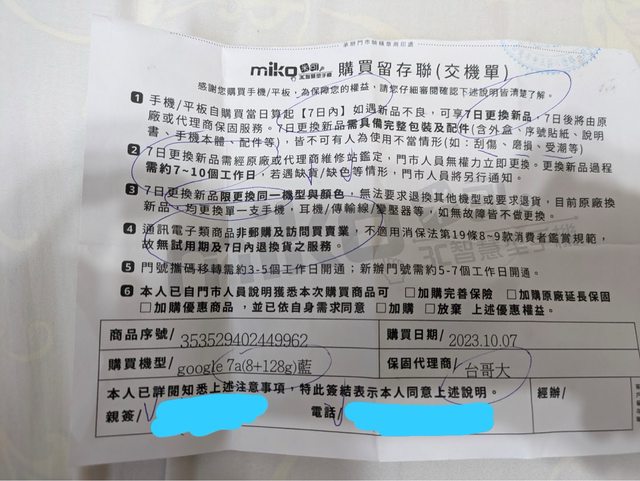 承辦門市
miko 米可 3C智慧型手機 購買留存聯(交機單)
感謝您購買手機/平板，為保障您的權益，請您仔細審閱確認下述說明皆清楚了解。
1 手機/平板自購買當日算起【7日內】如遇新品不良，可享7日更換新品，7日後將由原
廠或代理商保固服務。7日更換新品需具備完整包裝及配件(含外盒、序號貼紙、說明
書、手機本體、配件等)，皆不可有人為使用不當情形(如：刮傷、磨損、受潮等)
2 7日更換新品需經原廠或代理商維修站鑑定，門市人員無權力立即更換。更換新品過程
需約7~10個工作日，若遇缺貨/缺色等情形，門市人員將另行通知。
3 7日更換新品限更換同一機型與顏色，無法要求退換其他機型或要求退貨，目前原廠換
新品，均更換單一支手機，耳機/傳輸線/變壓器等，如無故障皆不做更換。
4 通訊電子類商品非郵購及訪問買賣業，不適用消保法第19條8~9款消費者鑑賞規範，
故無試用期及7日內退換貨之服務。
5 門號攜碼移轉需約3-5個工作日開通；新辦門號需約5-7個工作日開通。
6 本人已自門市人員說明獲悉本次購買商品可 □加購完善保險 □加購原廠延長保固
□加購優惠商品，並已依自身需求同意 □加購 □放棄 上述優惠權益。
商品序號/ 353529402449962 購買日期/ 2023.10.07
購買機型/ google 7a(8+128g)藍 保固代理商/ 台哥大
本人已詳閱知悉上述注意事項，特此簽結表示本人同意上述說明。 經辦/
親簽/ 電話/